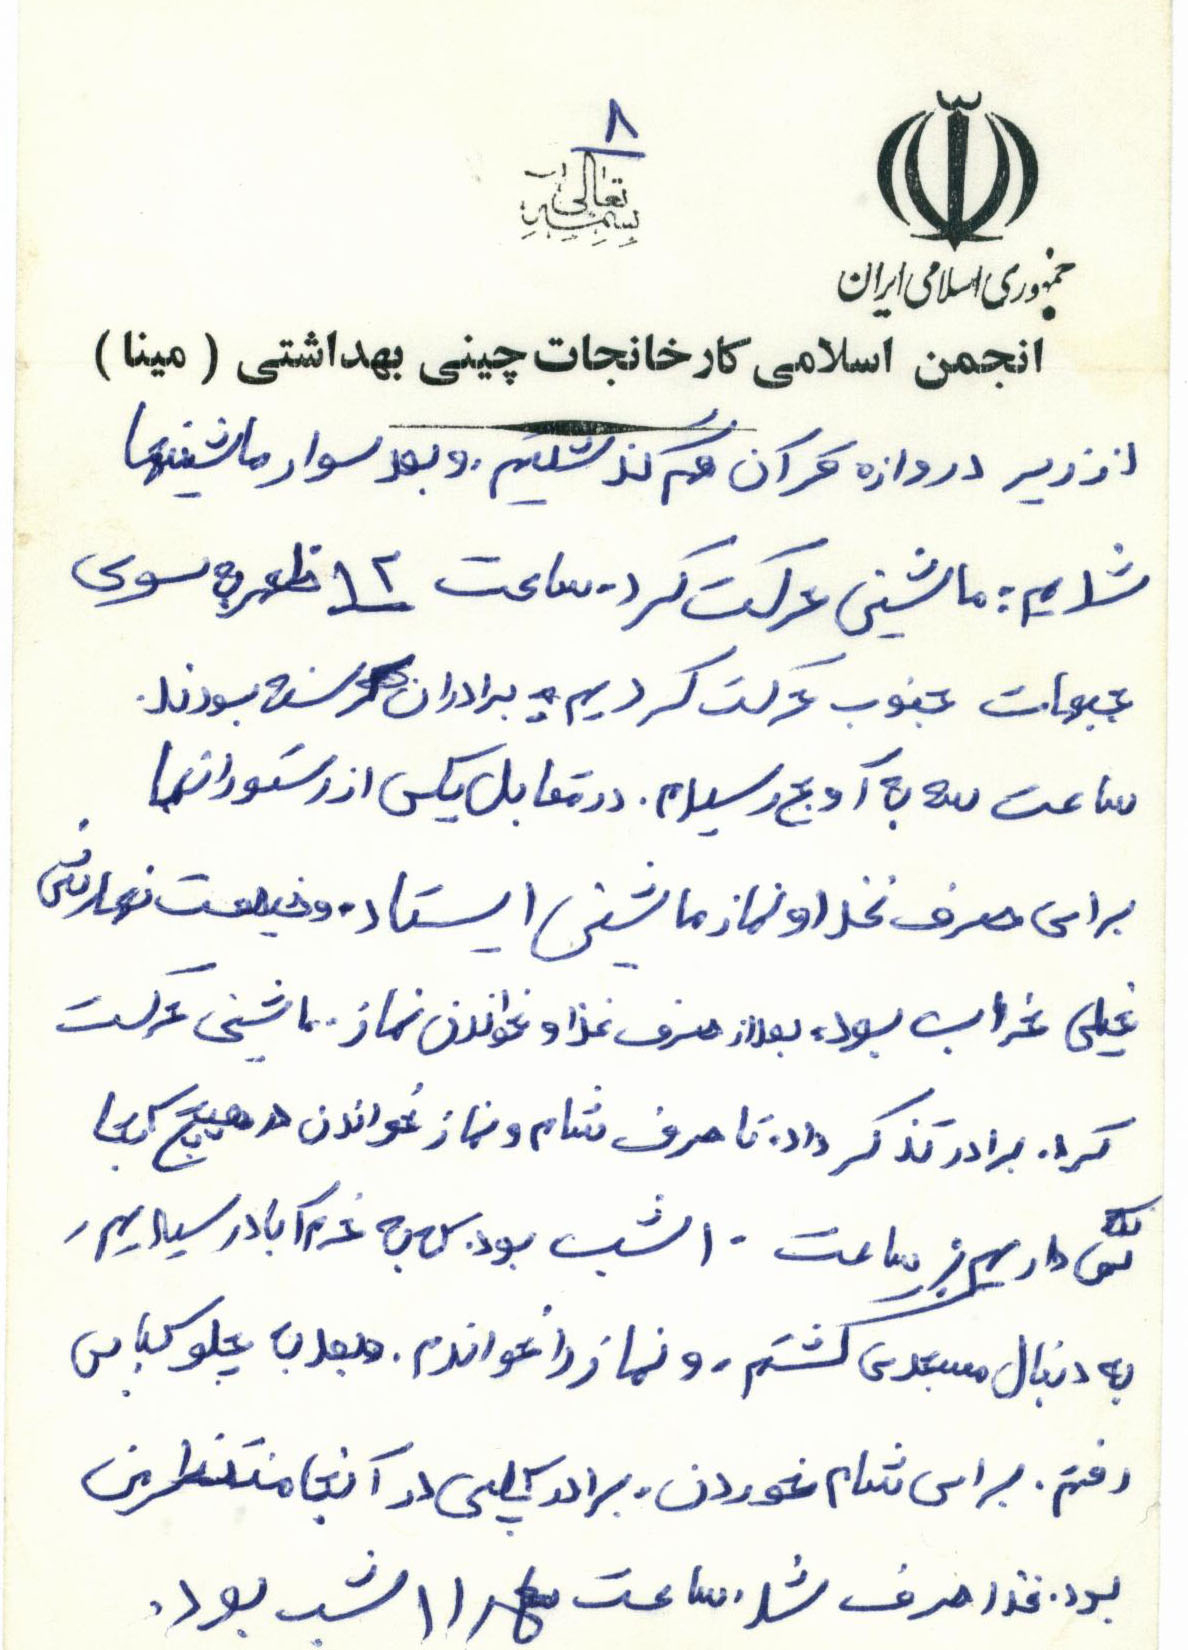 ۸
بسمه تعالی
جمهوری اسلامی ایران
انجمن اسلامی کارخانجات چینی بهداشتی ( مینا )
از زیر دروازه قرآن هم گذشتیم. و بعد سوار ماشینها
شدیم: ماشین حرکت کرد. ساعت ۱۲ ظهر به سوی
جبهات جنوب حرکت کردیم برادران گرسنه بودند.
ساعت سه به آوج رسیدم. در مقابل یکی از رستورانها
برای صرف غذا و نماز ماشین ایستاد. وضیعت نهارش
خیلی خراب بود. بعد از صرف غذا و خواندن نماز. ماشین حرکت
کرد. برادر تذکر داد. تا صرف شام و نماز خواندن در هیچ کجا
نگه داریم ساعت ۱۰ شب بود. به خرم آباد رسیدیم.
به دنبال مسجدی گشتم. و نماز را خواندم. بعد به چلو کبابی
رفتم. برای شام خوردن. برادر در آنجا منتظر من
بود. غذا صرف شد. ساعت ۱۱ شب بود.